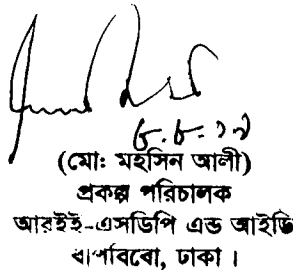 ৮.৮.১৭
(মোঃ মহসিন আলী)
প্রকল্প পরিচালক
আরইই-এসডিপি এন্ড আইডি
বাপবিবো, ঢাকা ।